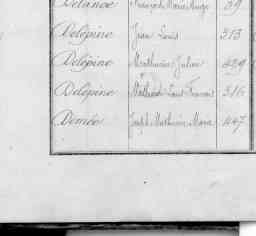 Delanoë François Marie Ange 39
Delépine Jean Louis 313
Delépine Mathurin Julien 429
Delépine Mathurin Louis François 316
Demée Joseph Mathurin Marie 447